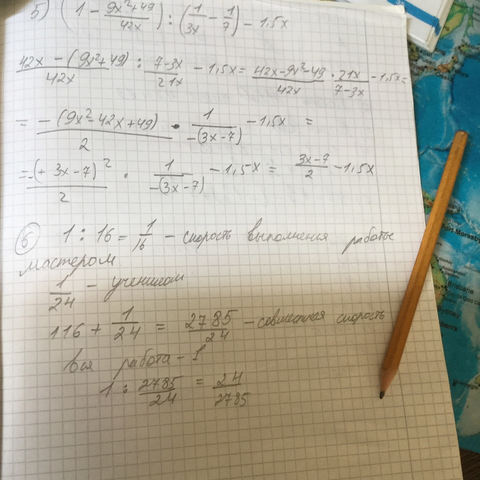 5) (1 - (9x²+49)/42x) : (1/3x - 1/7) - 1,5x
(42x - (9x²+49))/42x : (7-3x)/21x - 1,5x = (42x-9x²-49)/42x · 21x/(7-3x) - 1,5x =
= -(9x²-42x+49)/2 · 1/-(3x-7) - 1,5x =
= -(+3x-7)²/2 · 1/-(3x-7) - 1,5x = (3x-7)/2 - 1,5x
6) 1 : 16 = 1/16 - скорость выполнения работы
мастером
1/24 - учеником
116 + 1/24 = 2785/24 - совместная скорость
Вся работа - 1
1 : 2785/24 = 24/2785